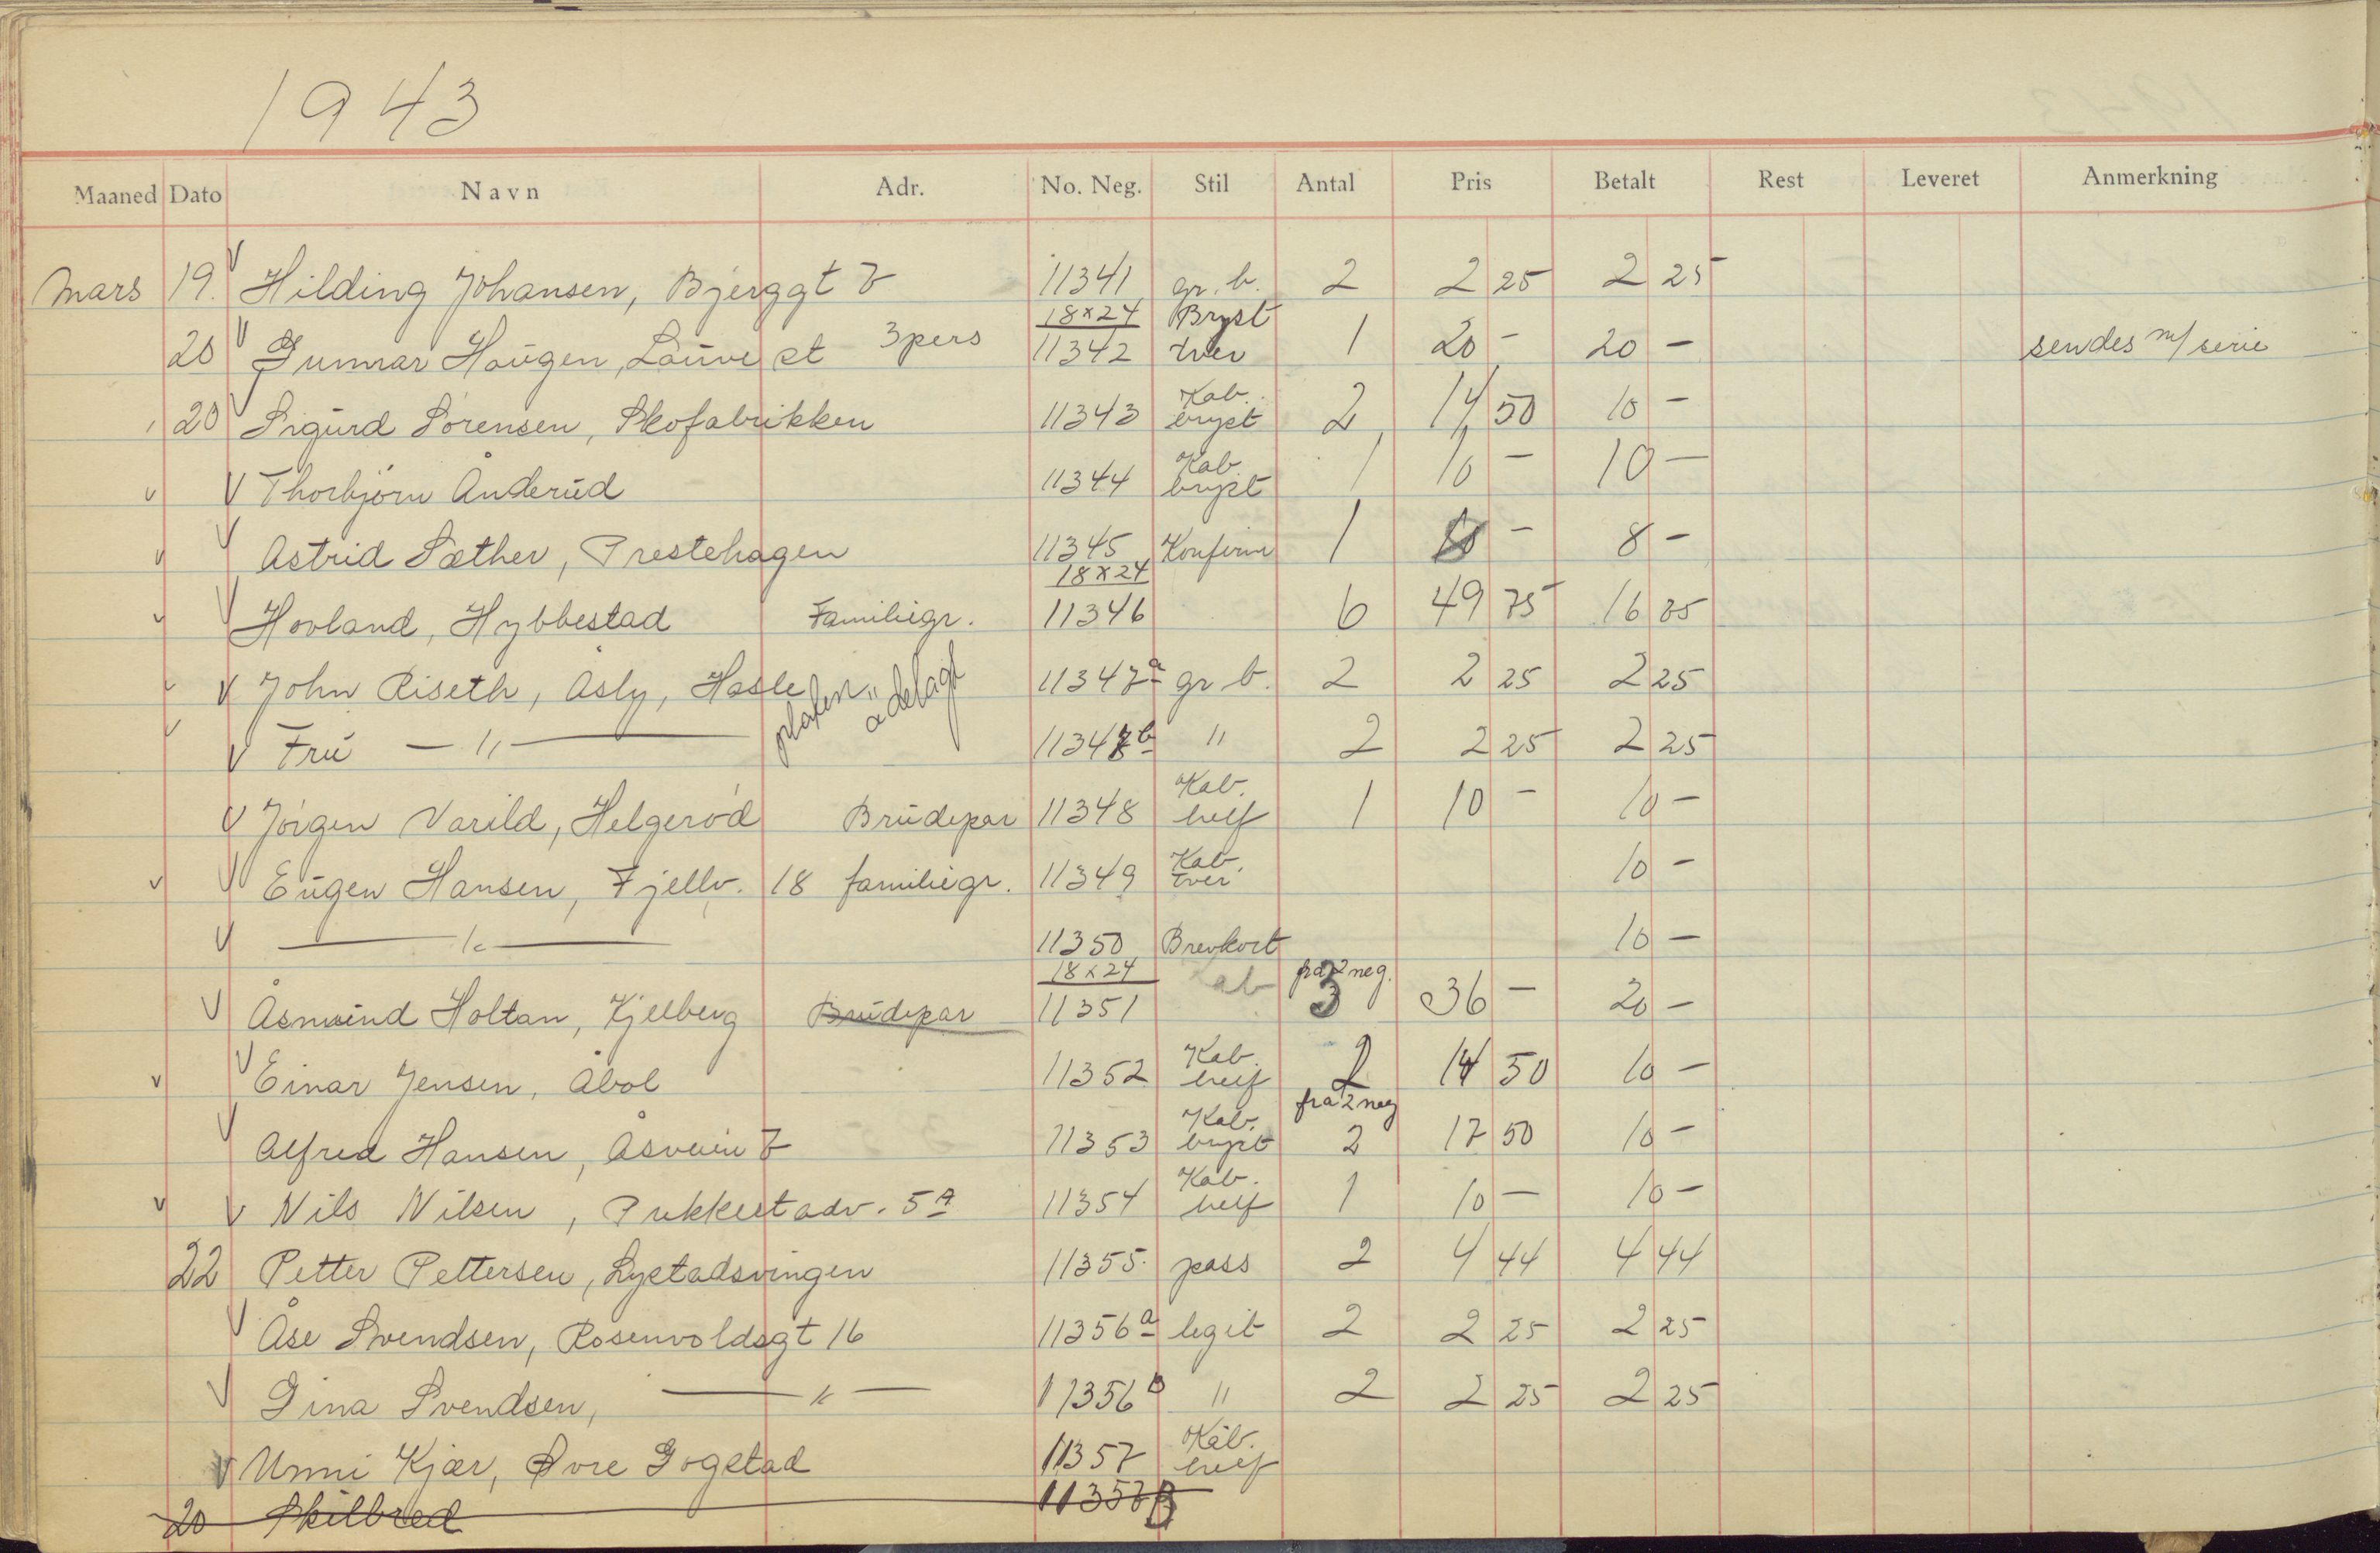 1943
Maaned Dato Navn Adr. No. Neg. Stil Antal Pris Betalt Rest Leveret Anmerkning
Mars 19. V Hilding Johansen, Bjerggt 7 11341 gr. b. 2 2 25 2 25
20 V Gunnar Haugen, Lauve st 3 pers 18x24 11342 Bryst tver 1 20 - 20 - sendes m/ serie
20 V Sigurd Sörensen, Skofabrikken 11343 Kab. bryst 2 14 50 10 -
V V Thorbjörn Anderud 11344 Kab bryst 1 10 - 10 -
V V Astrid Sæther, Prestehagen 11345 Konfirm 1 - 8 -
V V Hovland, Hybbestad Familiegr. 18x24 11346 6 49 75 16 25
V V John Riseth, Åsly, Hasle platen ödelagt 11347a gr b. 2 2 25 2 25
V V Fru — " — 11347b " 2 2 25 2 25
V Jörgen Varild, Helgeröd Brudepar 11348 Kab. helf 1 10 - 10 -
V V Eugen Hansen, Fjellv. 18 familiegr. 11349 Kab. tver 10 -
V — " — 11350 Brevkort 10 -
V Åsmund Holtan, Kjelberg Brudepar 18x24 11351 ab fra 2 neg. 3 36 - 20 -
V V Einar Jensen, Åbol 11352 Kab. helf 2 14 50 10 -
V Alfred Hansen, Åsveien 7 11353 Kab. bryst fra 2 neg 2 17 50 10 -
V V Nils Nilsen, Pukkestadv. 5A 11354 Kab. helf 1 10 - 10 -
22 Petter Pettersen, Lystadsvingen 11355. pass 2 4 44 4 44
V Åse Svendsen, Rosenvoldsgt 16 11356a legit 2 2 25 2 25
V Gina Svendsen, — " — 11356b " 2 2 25 2 25
V Unni Kjær, Øvre Gogstad 11357 Kab. helf
20 Skilbred 11357B